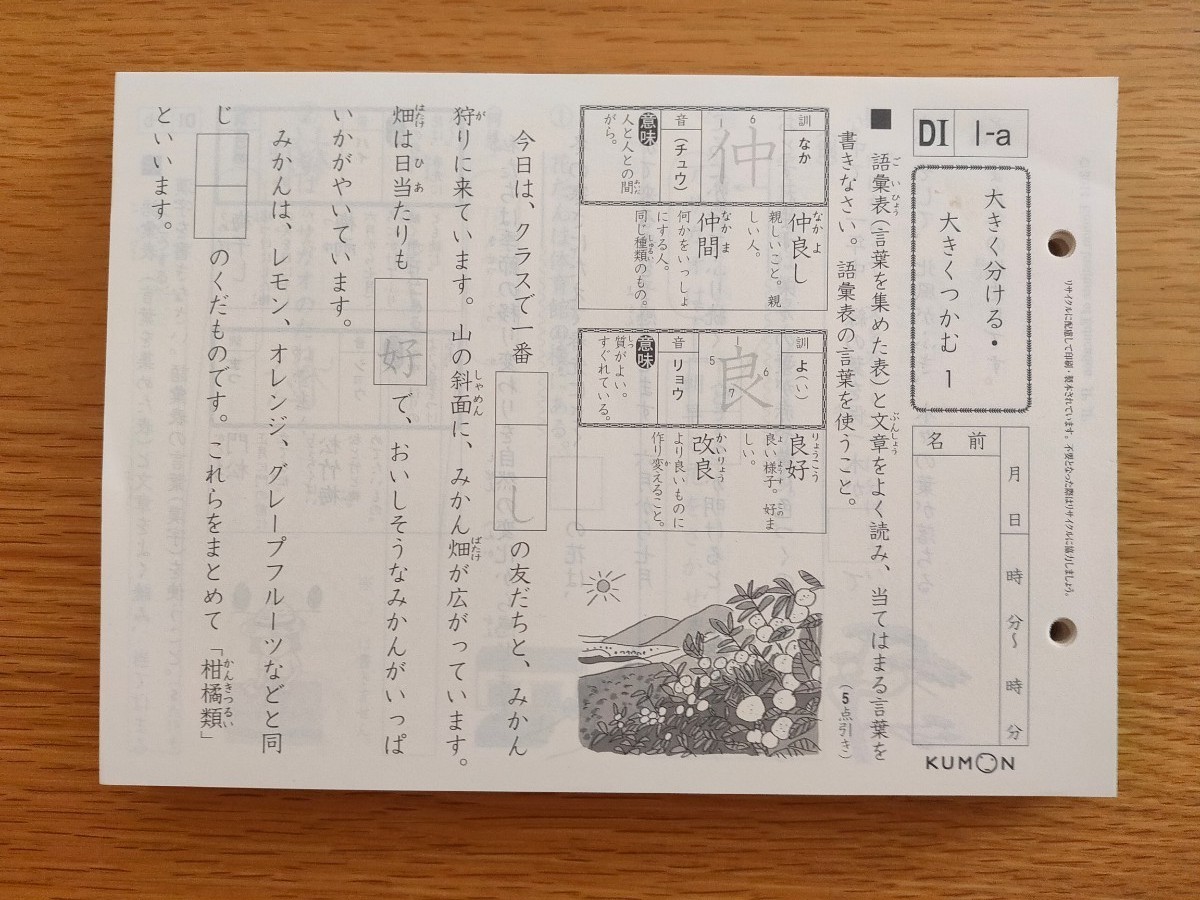 DI 1-a
大きく分ける・
大きくつかむ 1
名前
月 日 時 分〜 時 分
KUMON
リサイクルに配慮して印刷・製本されています。不要となった際はリサイクルに協力しましょう。
■ 語彙表(言葉を集めた表)と文章をよく読み、当てはまる言葉を
ごいひょう ぶんしょう
書きなさい。語彙表の言葉を使うこと。
(5点引き)
訓 なか
音 (チュウ)
仲
1 6
意味
人と人との間
あいだ
がら。
仲良し
なかよ
親しいこと。親
しい人。
仲間
なかま
何かをいっしょ
にする人。
同じ種類のもの。
しゅるい
訓 よ(い)
音 リョウ
良
1 5 6 7
意味
質がよい。
しつ
すぐれている。
良好
りょうこう
良い様子。好ま
よ ようす この
しい。
改良
かいりょう
より良いものに
作り変えること。
か
今日は、クラスで一番 し の友だちと、みかん
狩りに来ています。山の斜面に、みかん畑が広がっています。
が しゃめん ばたけ
畑は日当たりも 好 で、おいしそうなみかんがいっぱ
はたけ ひ あ
いかがやいています。
みかんは、レモン、オレンジ、グレープフルーツなどと同
じ のくだものです。これらをまとめて「柑橘類」
かんきつるい
といいます。